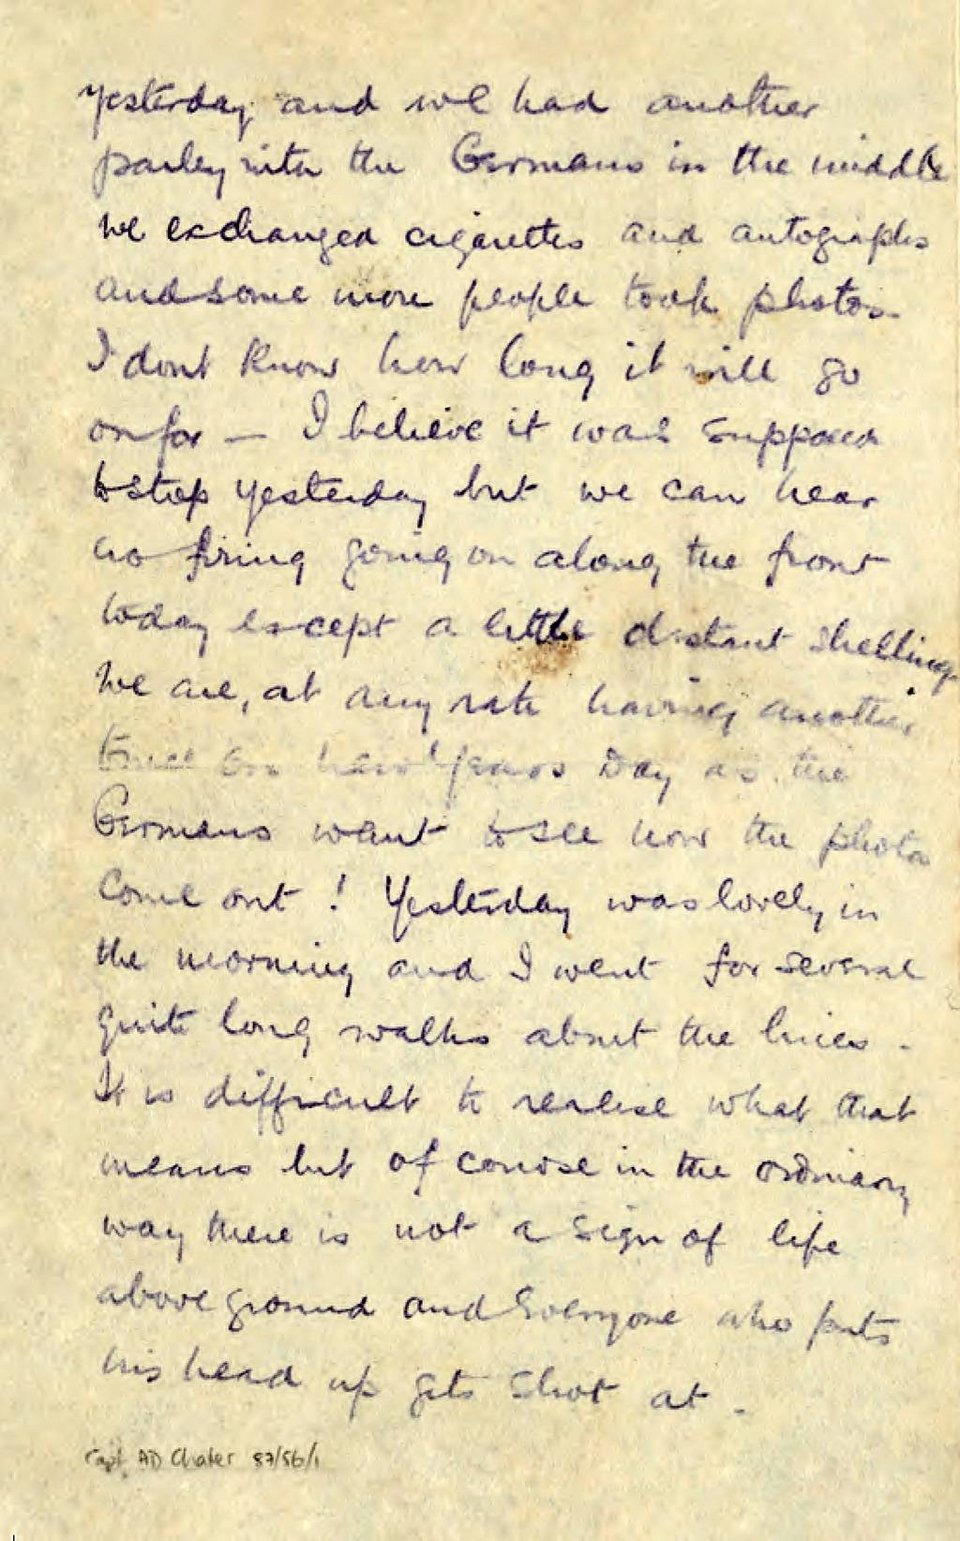 yesterday and we had another
parley with the Germans in the middle
We exchanged cigarettes and autographs
and some more people took photos.
I dont know how long it will go
on for — I believe it was supposed
to stop yesterday but we can hear
no firing going on along the front
today except a little distant shelling
We are, at any rate having another
truce on New Years Day as the
Germans want to see how the photos
come out! Yesterday was lovely in
the morning and I went for several
quite long walks about the lines.
It is difficult to realise what that
means but of course in the ordinary
way there is not a sign of life
above ground and everyone who puts
his head up gets shot at.
Capt AD Chater 87/56/1